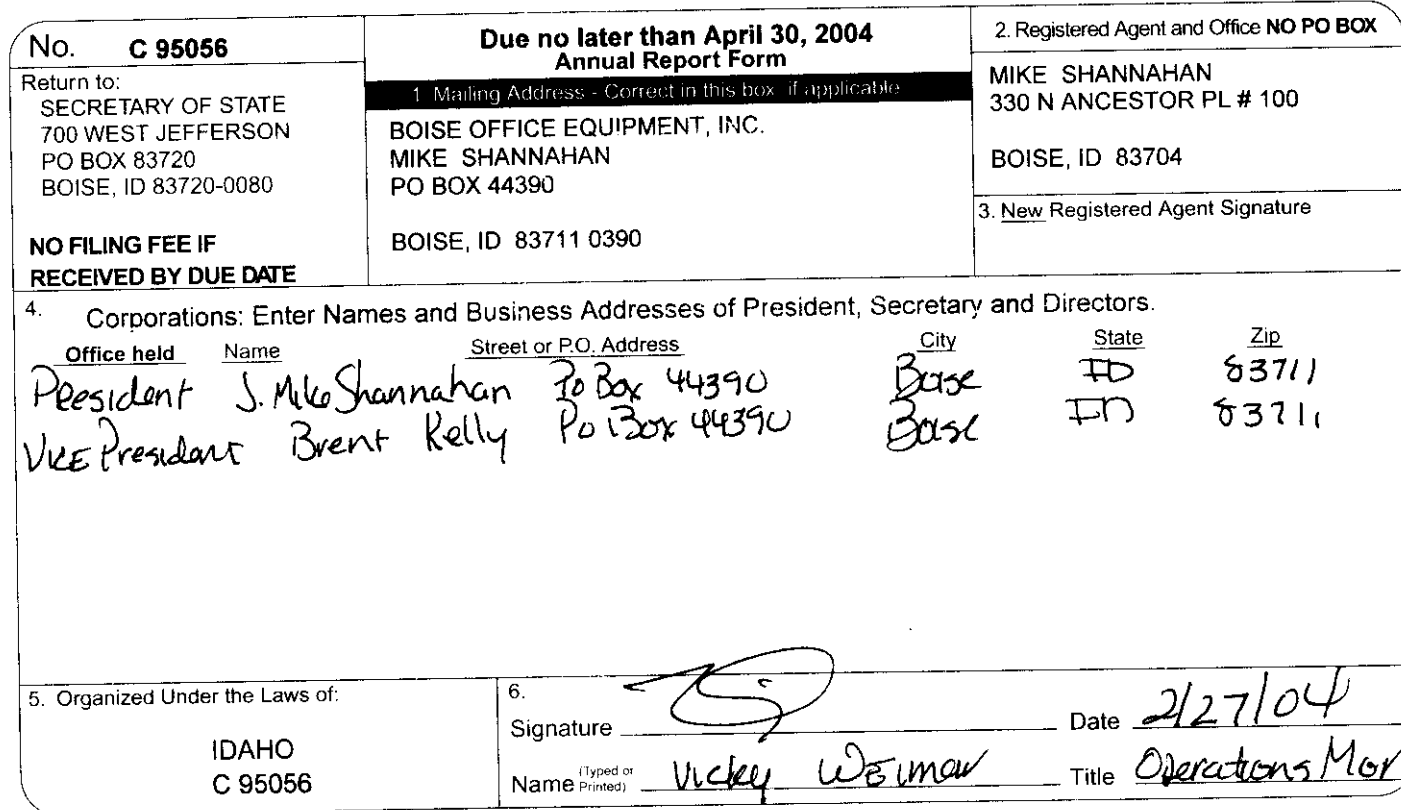 No. C 95056
Return to:
SECRETARY OF STATE
700 WEST JEFFERSON
PO BOX 83720
BOISE, ID 83720-0080
NO FILING FEE IF
RECEIVED BY DUE DATE
Due no later than April 30, 2004
Annual Report Form
1 Mailing Address - Correct in this box if applicable
BOISE OFFICE EQUIPMENT, INC.
MIKE SHANNAHAN
PO BOX 44390
BOISE, ID 83711 0390
2. Registered Agent and Office NO PO BOX
MIKE SHANNAHAN
330 N ANCESTOR PL # 100
BOISE, ID 83704
3. New Registered Agent Signature
4. Corporations: Enter Names and Business Addresses of President, Secretary and Directors.
Office held Name Street or P.O. Address City State Zip
President J. Mike Shannahan Po Box 44390 Boise ID 83711
Vice President Brent Kelly Po Box 44390 Boise ID 83711
5. Organized Under the Laws of:
IDAHO
C 95056
6.
Signature Date 2/27/04
Name (Typed or Printed) Vicky Weimar Title Operations Mgr